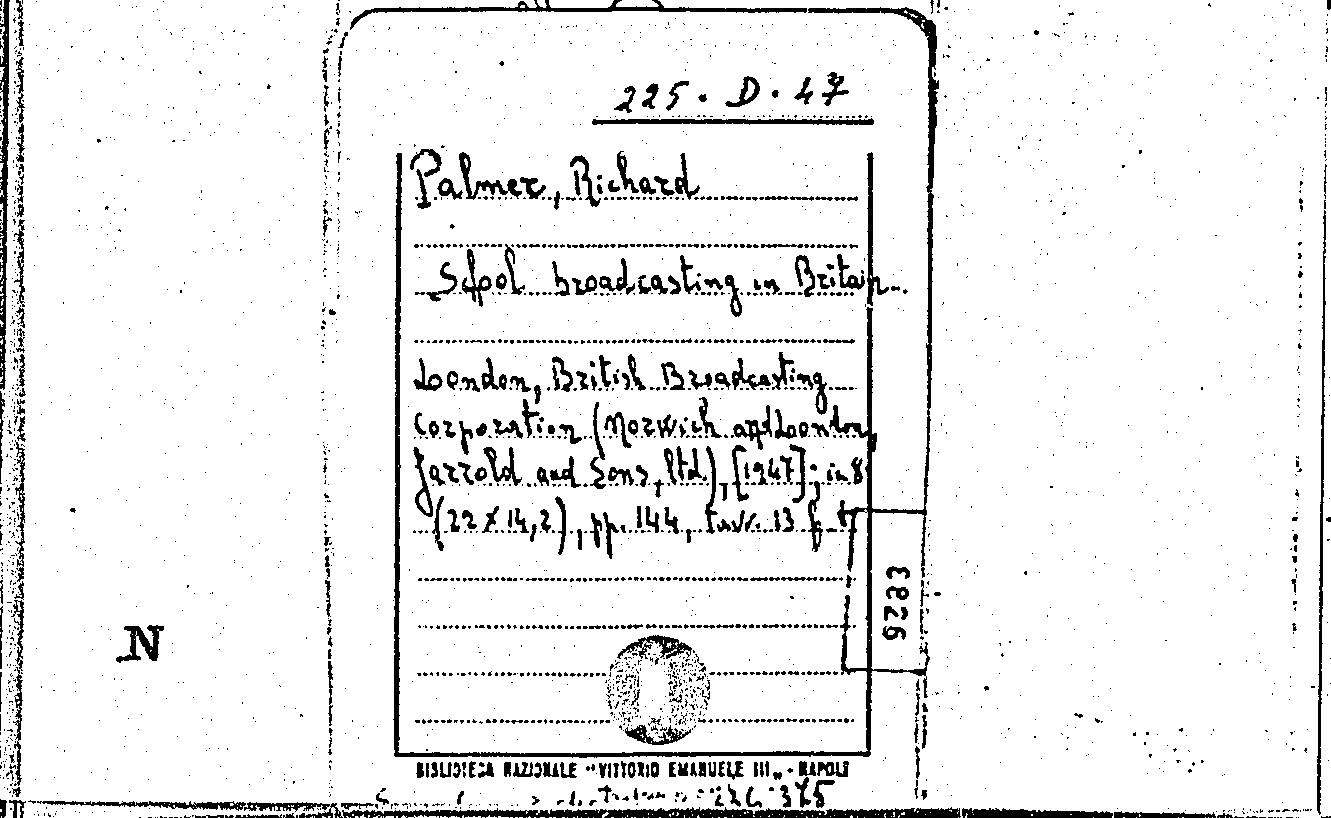 225. D. 47
Palmer, Richard
School broadcasting in Britain.
London, British Broadcasting
Corporation (Norwich and London,
Jarrold and Sons, ltd), [1947]; in 8
(22 × 14,2), pp. 144, tavv. 13 f. t.
9826
N
BIBLIOTECA NAZIONALE "VITTORIO EMANUELE III„ - NAPOLI
375